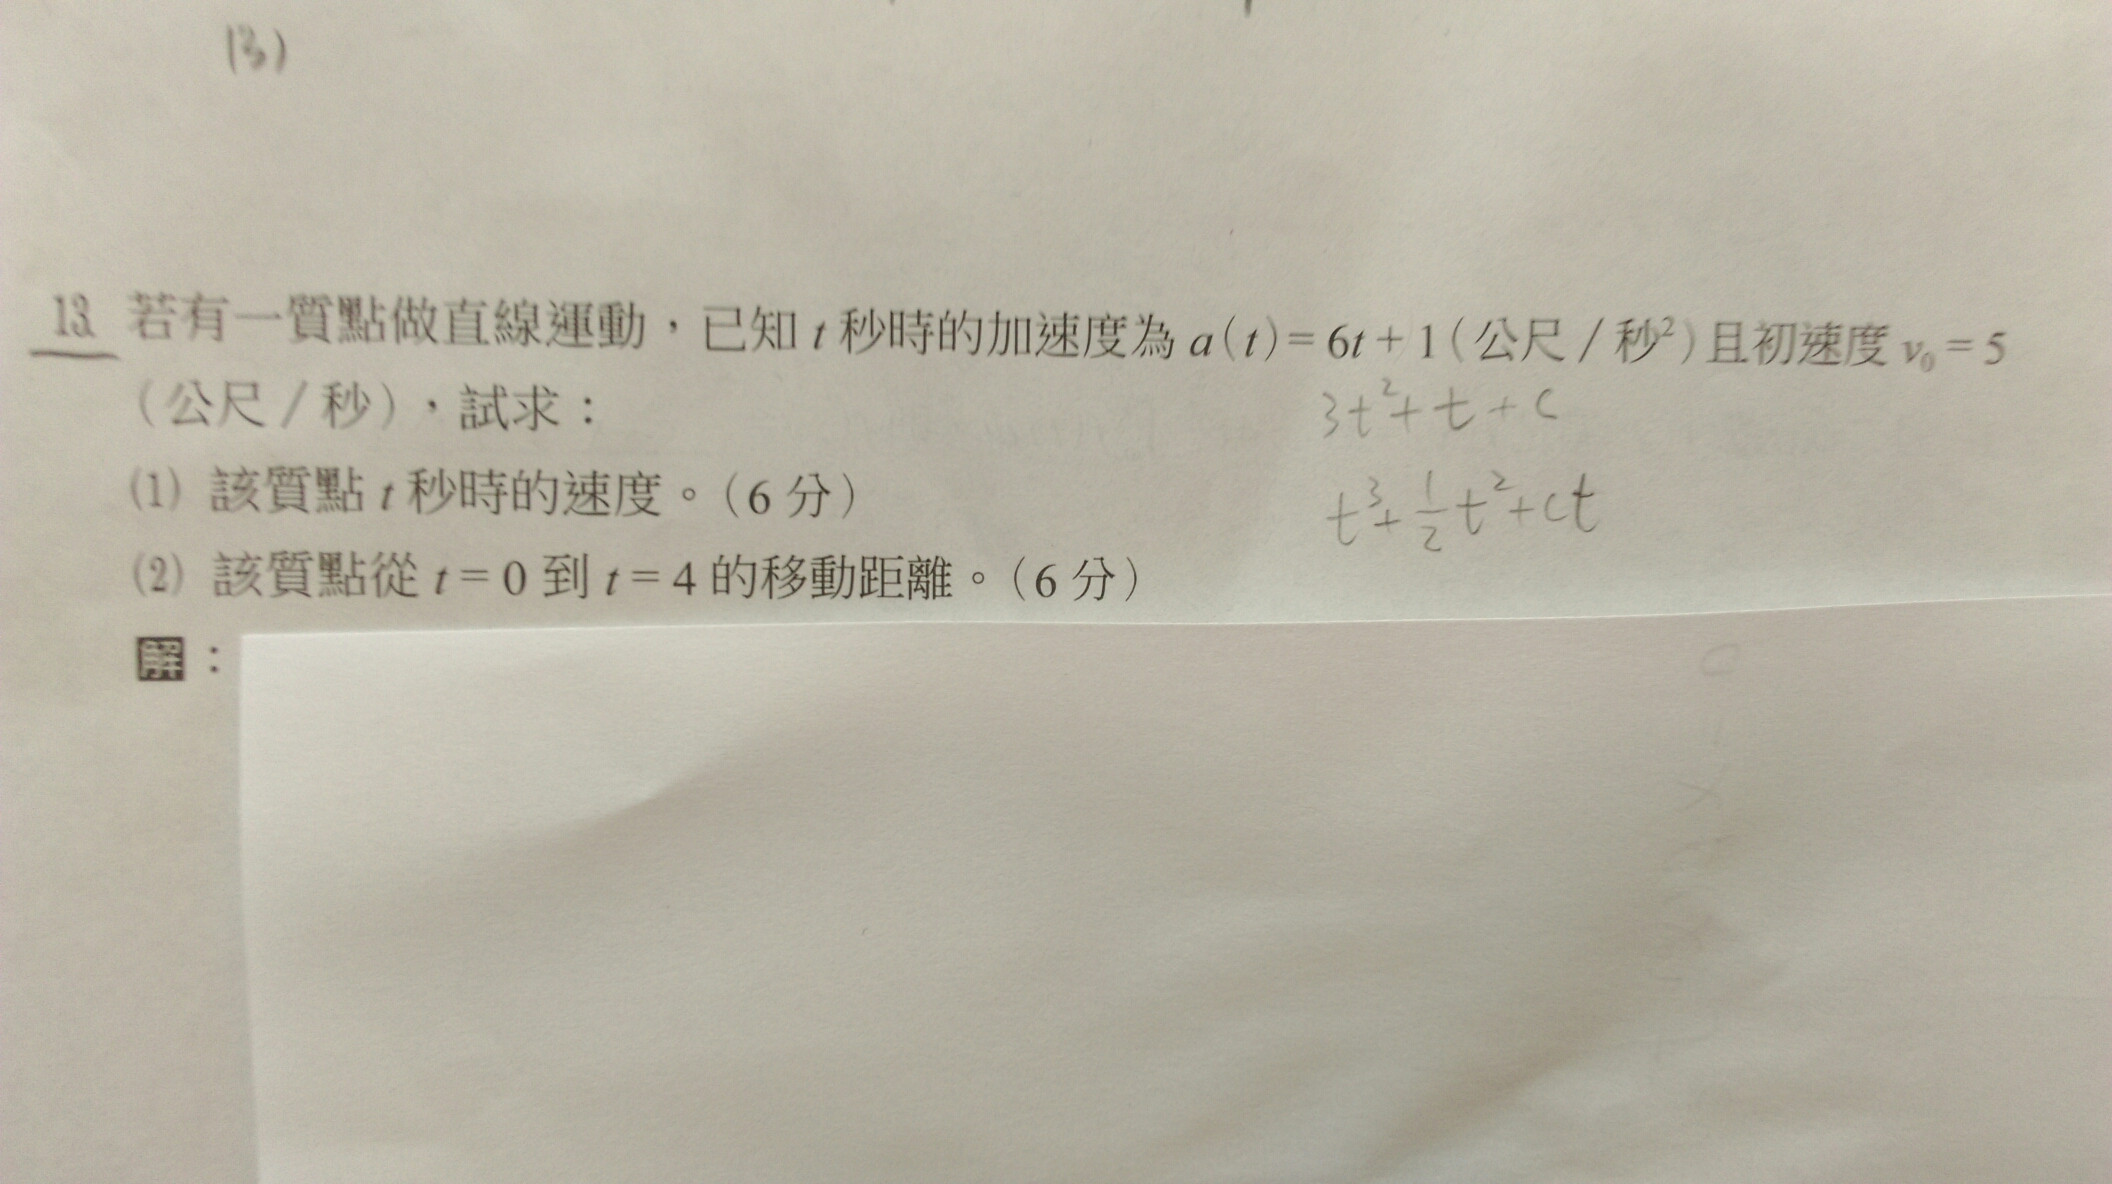 (3)
13. 若有一質點做直線運動，已知 t 秒時的加速度為 a(t)=6t+1(公尺/秒²)且初速度 v₀=5
(公尺/秒)，試求：
3t²+t+c
(1) 該質點 t 秒時的速度。(6 分)
t³+½t²+ct
(2) 該質點從 t=0 到 t=4 的移動距離。(6 分)
解：